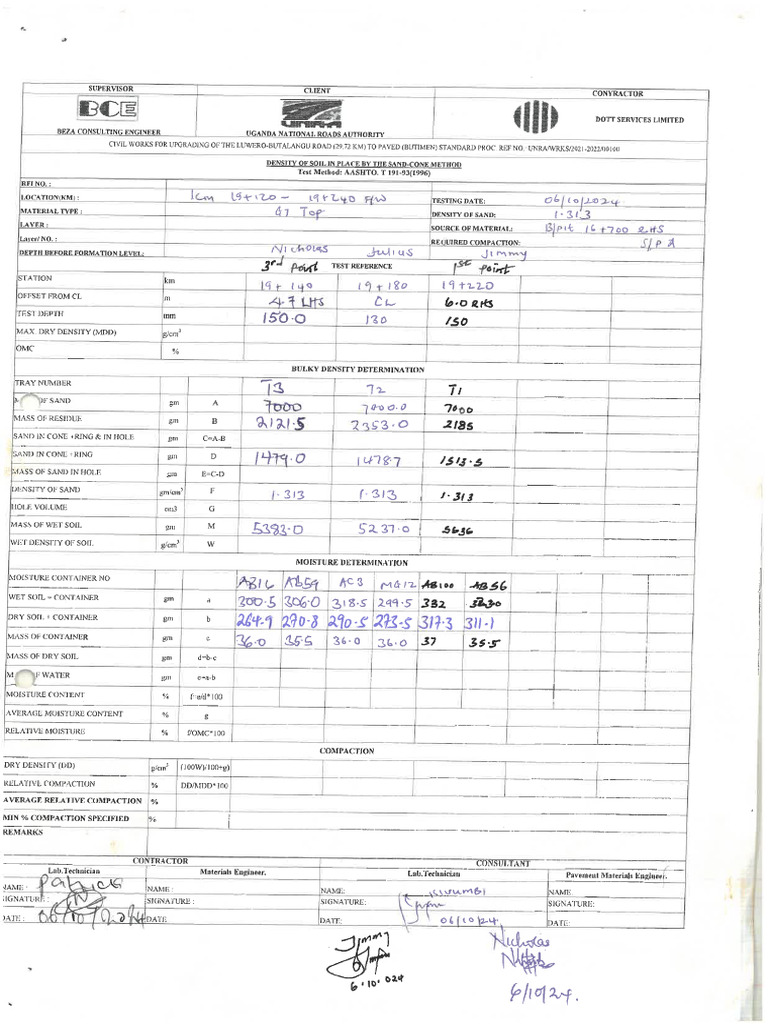 SUPERVISOR CLIENT CONYRACTOR
BCE UNRA DOTT SERVICES LIMITED
BEZA CONSULTING ENGINEER UGANDA NATIONAL ROADS AUTHORITY
CIVIL WORKS FOR UPGRADING OF THE LUWERO-BUTALANGU ROAD (29.72 KM) TO PAVED (BUTIMEN) STANDARD PROC. REF NO. UNRA/WRKS/2021-2022/00100
DENSITY OF SOIL IN PLACE BY THE SAND-CONE METHOD
Test Method: AASHTO. T 191-93(1996)
RFI NO. :
LOCATION(KM) : Km 19+120 - 19+240 F/W TESTING DATE: 06/10/2024
MATERIAL TYPE : G7 Top DENSITY OF SAND: 1.313
LAYER : SOURCE OF MATERIAL: B/pit 16+700 RHS
Layer/ NO. : REQUIRED COMPACTION:
DEPTH BEFORE FORMATION LEVEL: Nicholas Julius Jimmy
3rd point TEST REFERENCE 1st point
STATION km 19+140 19+180 19+220
OFFSET FROM CL m 4.7 LHS CL 6.0 RHS
TEST DEPTH mm 150.0 130 150
MAX. DRY DENSITY (MDD) g/cm³
OMC %
BULKY DENSITY DETERMINATION
TRAY NUMBER T3 T2 T1
OF SAND gm A 7000 7000.0 7000
MASS OF RESIDUE gm B 2121.5 2353.0 2185
SAND IN CONE +RING & IN HOLE gm C=A-B
SAND IN CONE +RING gm D 1479.0 14787 1513.5
MASS OF SAND IN HOLE gm E=C-D
DENSITY OF SAND gm/cm³ F 1.313 1.313 1.313
HOLE VOLUME cm3 G
MASS OF WET SOIL gm M 5383.0 5237.0 5636
WET DENSITY OF SOIL g/cm³ W
MOISTURE DETERMINATION
MOISTURE CONTAINER NO AB16 AB59 AC3 MG12 AB100 AB56
WET SOIL + CONTAINER gm a 300.5 306.0 318.5 299.5 332
DRY SOIL + CONTAINER gm b 264.9 270.8 290.5 273.5 317.3 311.1
MASS OF CONTAINER gm c 36.0 35.5 36.0 36.0 37 35.5
MASS OF DRY SOIL gm d=b-c
OF WATER gm e=a-b
MOISTURE CONTENT % f=e/d*100
AVERAGE MOISTURE CONTENT % g
RELATIVE MOISTURE % f/OMC*100
COMPACTION
DRY DENSITY (DD) g/cm³ (100W)/100+g)
RELATIVE COMPACTION % DD/MDD*100
AVERAGE RELATIVE COMPACTION %
MIN % COMPACTION SPECIFIED %
REMARKS
CONTRACTOR CONSULTANT
Lab.Technician Materials Engineer. Lab.Technician Pavement Materials Engineer.
NAME : Patrick NAME : NAME: NAME
SIGNATURE : SIGNATURE : SIGNATURE: SIGNATURE:
DATE : 06/10/2024 DATE DATE: 06/10/24 DATE:
Jimmy Nicholas
6.10.024
6/10/24.